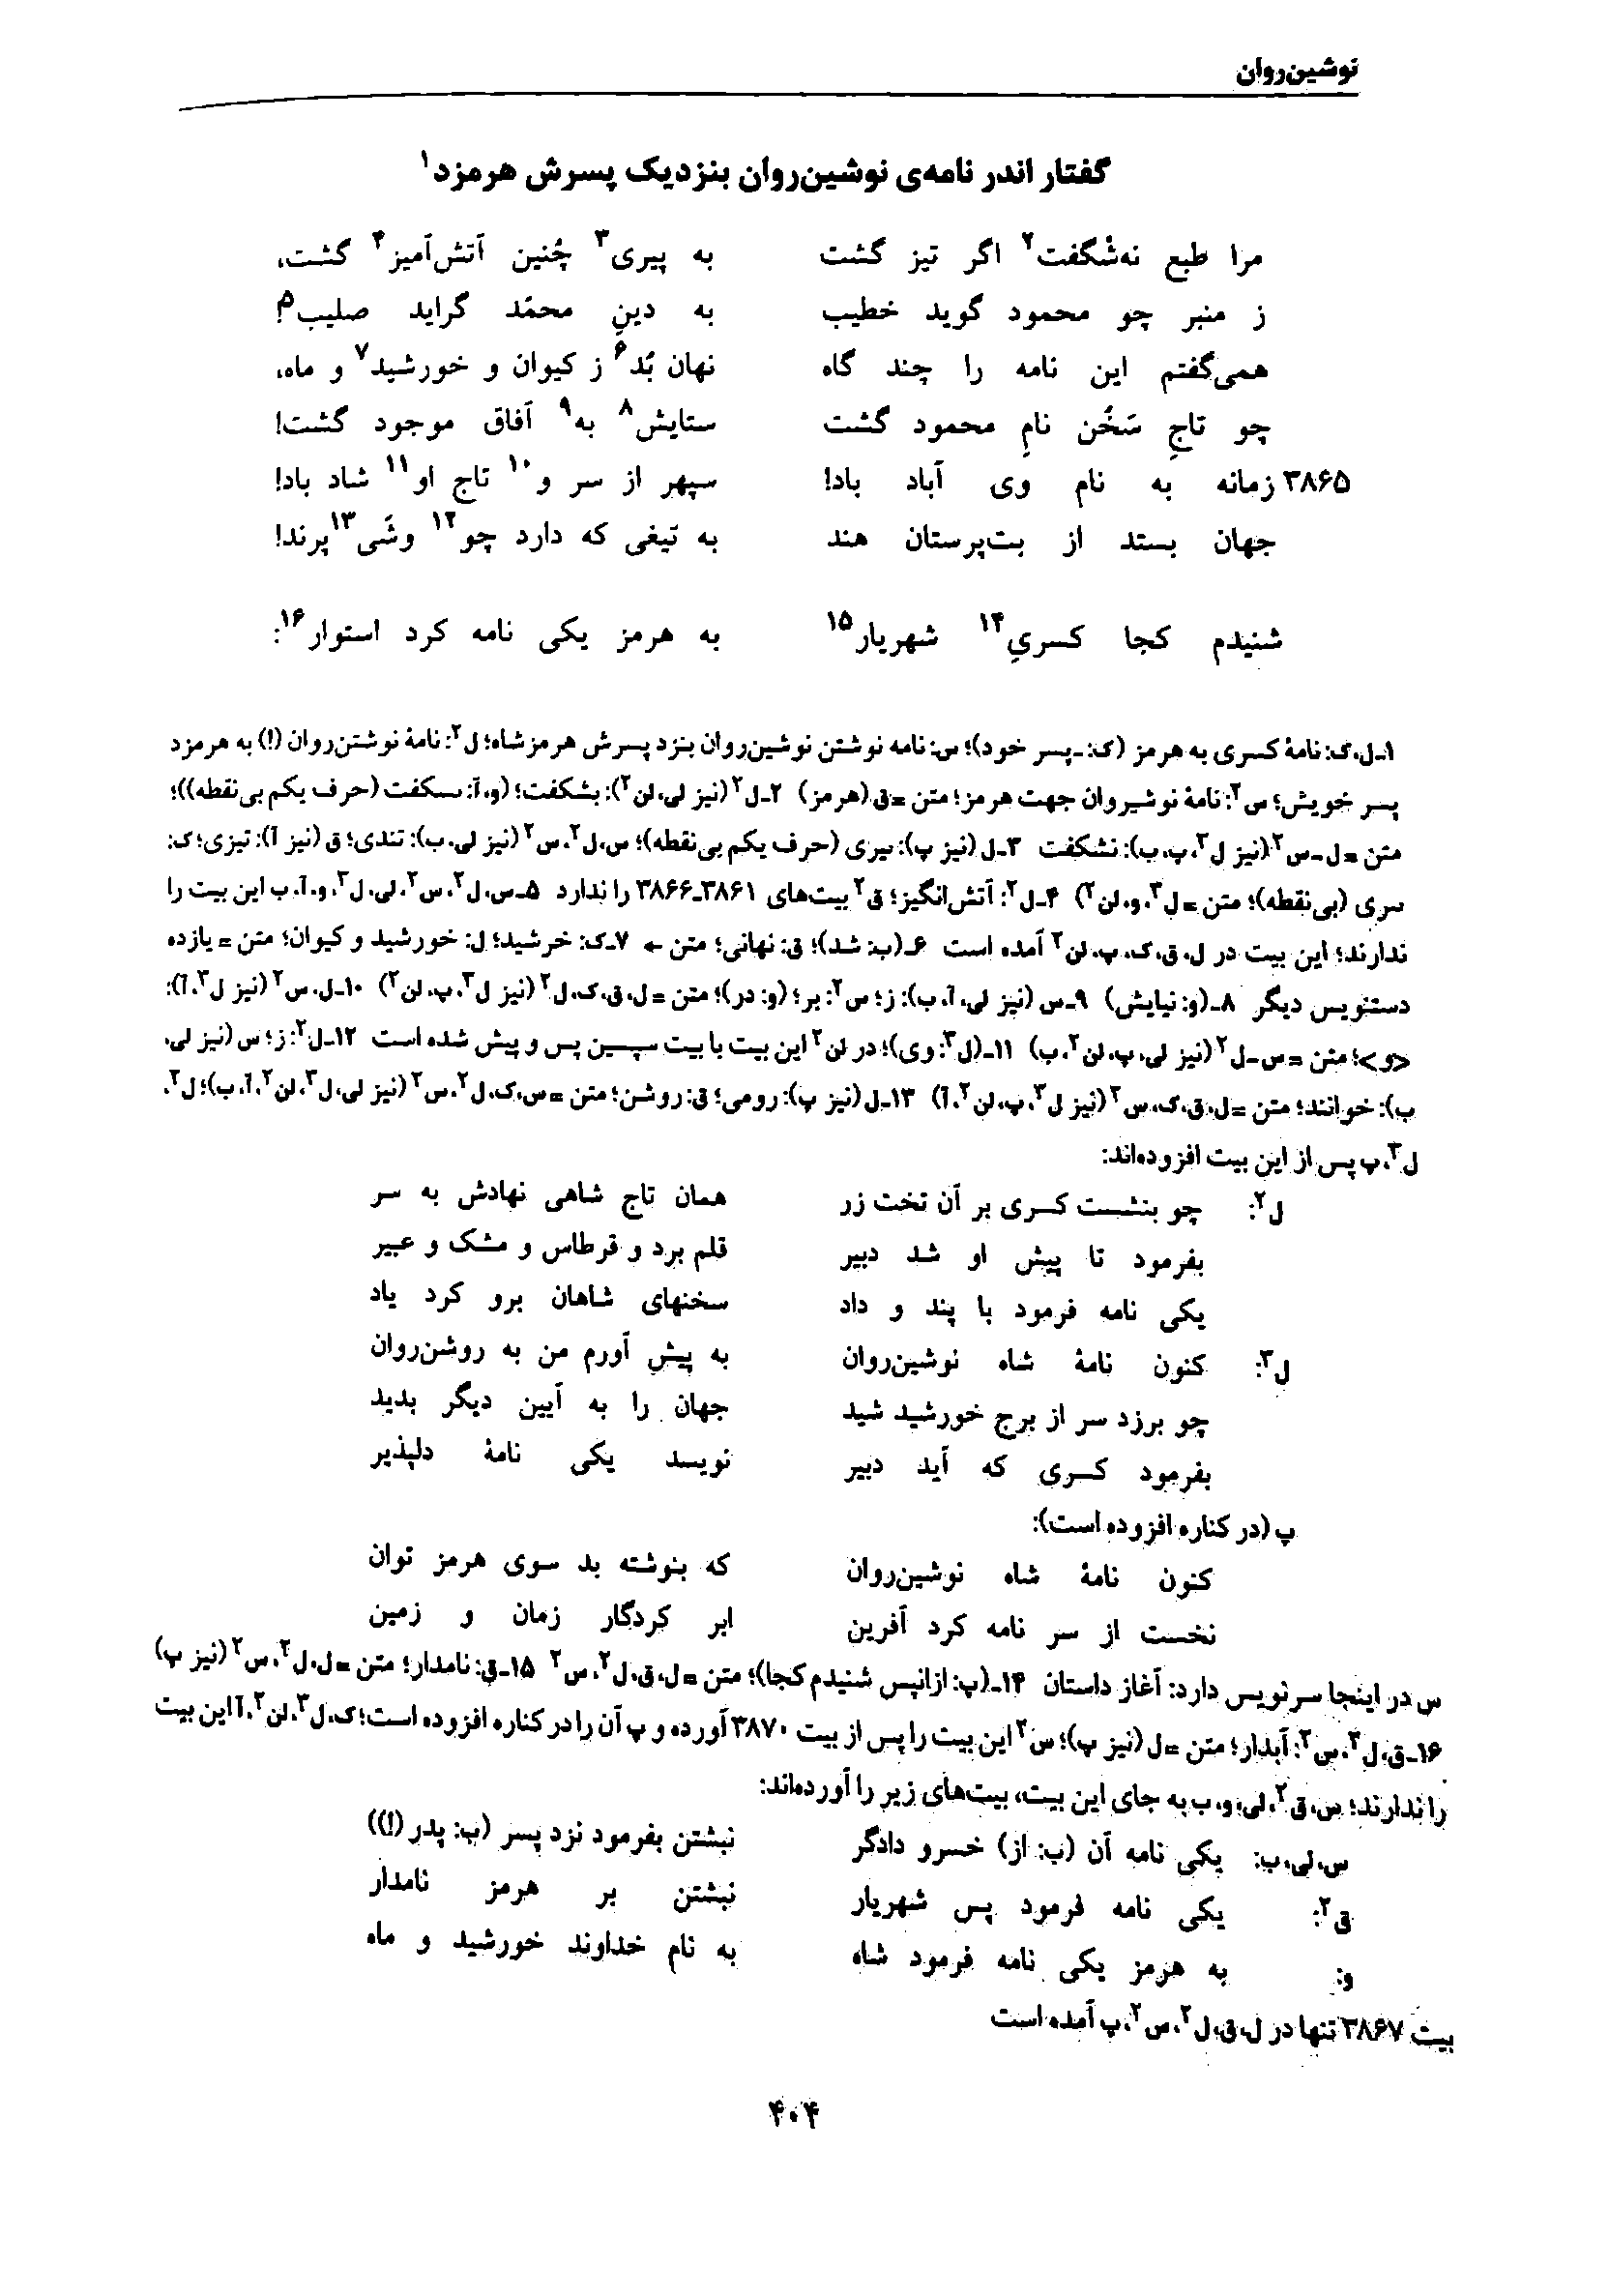 نوشین‌روان
گفتار اندر نامه‌ی نوشین‌روان بنزدیک پسرش هرمزد۱
مرا طبع نه‌شُگفت۲ اگر تیز گشت به پیری۳ چُنین آتش‌آمیز۴ گشت،
ز منبر چو محمود گوید خطیب به دینِ محمّد گراید صلیب۵!
همی‌گفتم این نامه را چند گاه نهان بُد۶ ز کیوان و خورشید۷ و ماه،
چو تاجِ سَخُن نامِ محمود گشت ستایش۸ به۹ آفاق موجود گشت!
۳۸۶۵ زمانه به نام وی آباد باد! سپهر از سر و۱۰ تاج او۱۱ شاد باد!
جهان بستد از بت‌پرستان هند به تیغی که دارد چو۱۲ وشَی۱۳ پرند!
شنیدم کجا کسریِ۱۴ شهریار۱۵ به هرمز یکی نامه کرد استوار۱۶:
۱ـ ل، ک: نامهٔ کسری به هرمز (ک: ـ پسر خود)؛ س: نامه نوشتن نوشین‌روان بنزد پسرش هرمزشاه؛ ل۲: نامهٔ نوشتن‌روان (!) به هرمزد
پسر خویش؛ س۲: نامهٔ نوشیروان جهت هرمز؛ متن = ق (هرمز) ۲ـ ل۲ (نیز لی، لن۲): بشکفت؛ (و، آ: ٮسکفت (حرف یکم بی‌نقطه))؛
متن = ل ـ س۲ (نیز ل۳، پ، ب): نشکفت ۳ـ ل (نیز پ): ٮیری (حرف یکم بی‌نقطه)؛ س، ل۲، س۲ (نیز لی، ب): تندی؛ ق (نیز آ): تیزی؛ ک:
ٮٮری (بی‌نقطه)؛ متن = ل۳، و، لن۲) ۴ـ ل۲: آتش‌انگیز؛ ق۲ بیت‌های ۳۸۶۱ـ۳۸۶۶ را ندارد ۵ـ س، ل۲، س۲، لی، ل۳، و، آ، ب این بیت را
ندارند؛ این بیت در ل، ق، ک، پ، لن۲ آمده است ۶ـ (ب: شد)؛ ق: نهانی؛ متن ← ۷ـ ک: خرشید؛ ل: خورشید و کیوان؛ متن = یازده
دستنویس دیگر ۸ـ (و: نیایش) ۹ـ س (نیز لی، آ، ب): ز؛ س۲: بر؛ (و: در)؛ متن = ل، ق، ک، ل۲ (نیز ل۳، پ، لن۲) ۱۰ـ ل، س۲ (نیز ل۳، آ):
<و>؛ متن = س ـ ل۲ (نیز لی، پ، لن۲، ب) ۱۱ـ (ل۳: وی)؛ در لن۲ این بیت با بیت سپسین پس و پیش شده است ۱۲ـ ل۲: ز؛ س (نیز لی،
ب): خوانند؛ متن = ل، ق، ک، س۲ (نیز ل۳، پ، لن۲، آ) ۱۳ـ ل (نیز پ): رومی؛ ق: روشن؛ متن = س، ک، ل۲، س۲ (نیز لی، ل۳، لن۲، آ، ب)؛ ل۲،
ل۳، پ پس از این بیت افزوده‌اند:
ل۲: چو بنشست کسری بر آن تخت زر همان تاج شاهی نهادش به سر
بفرمود تا پیش او شد دبیر قلم برد و قرطاس و مشک و عبیر
یکی نامه فرمود با پند و داد سخنهای شاهان برو کرد یاد
ل۳: کنون نامهٔ شاه نوشین‌روان به پیش آورم من به روشن‌روان
چو برزد سر از برج خورشید شید جهان را به آیین دیگر بدید
بفرمود کسری که آید دبیر نویسد یکی نامهٔ دلپذیر
پ (در کناره افزوده است):
کنون نامهٔ شاه نوشین‌روان که بنوشته بد سوی هرمز توان
نخست از سر نامه کرد آفرین ابر کردگار زمان و زمین
س در اینجا سرنویس دارد: آغاز داستان ۱۴ـ (پ: ازانپس شنیدم کجا)؛ متن = ل، ق، ل۲، س۲ ۱۵ـ ق: نامدار؛ متن = ل، ل۲، س۲ (نیز پ)
۱۶ـ ق، ل۲، س۲: آبدار؛ متن = ل (نیز پ)؛ س۲ این بیت را پس از بیت ۳۸۷۰ آورده و پ آن را در کناره افزوده است؛ ک، ل۳، لن۲، آ این بیت
را ندارند؛ س، ق۲، لی، و، ب به جای این بیت، بیت‌های زیر را آورده‌اند:
س، لی، ب: یکی نامه آن (ب: از) خسرو دادگر نبشتن بفرمود نزد پسر (ب: پدر (!))
ق۲: یکی نامه فرمود پس شهریار نبشتن بر هرمز نامدار
و: به هرمز یکی نامه فرمود شاه به نام خداوند خورشید و ماه
بیت ۳۸۶۷ تنها در ل، ق، ل۲، س۲، پ آمده است
۴۰۴